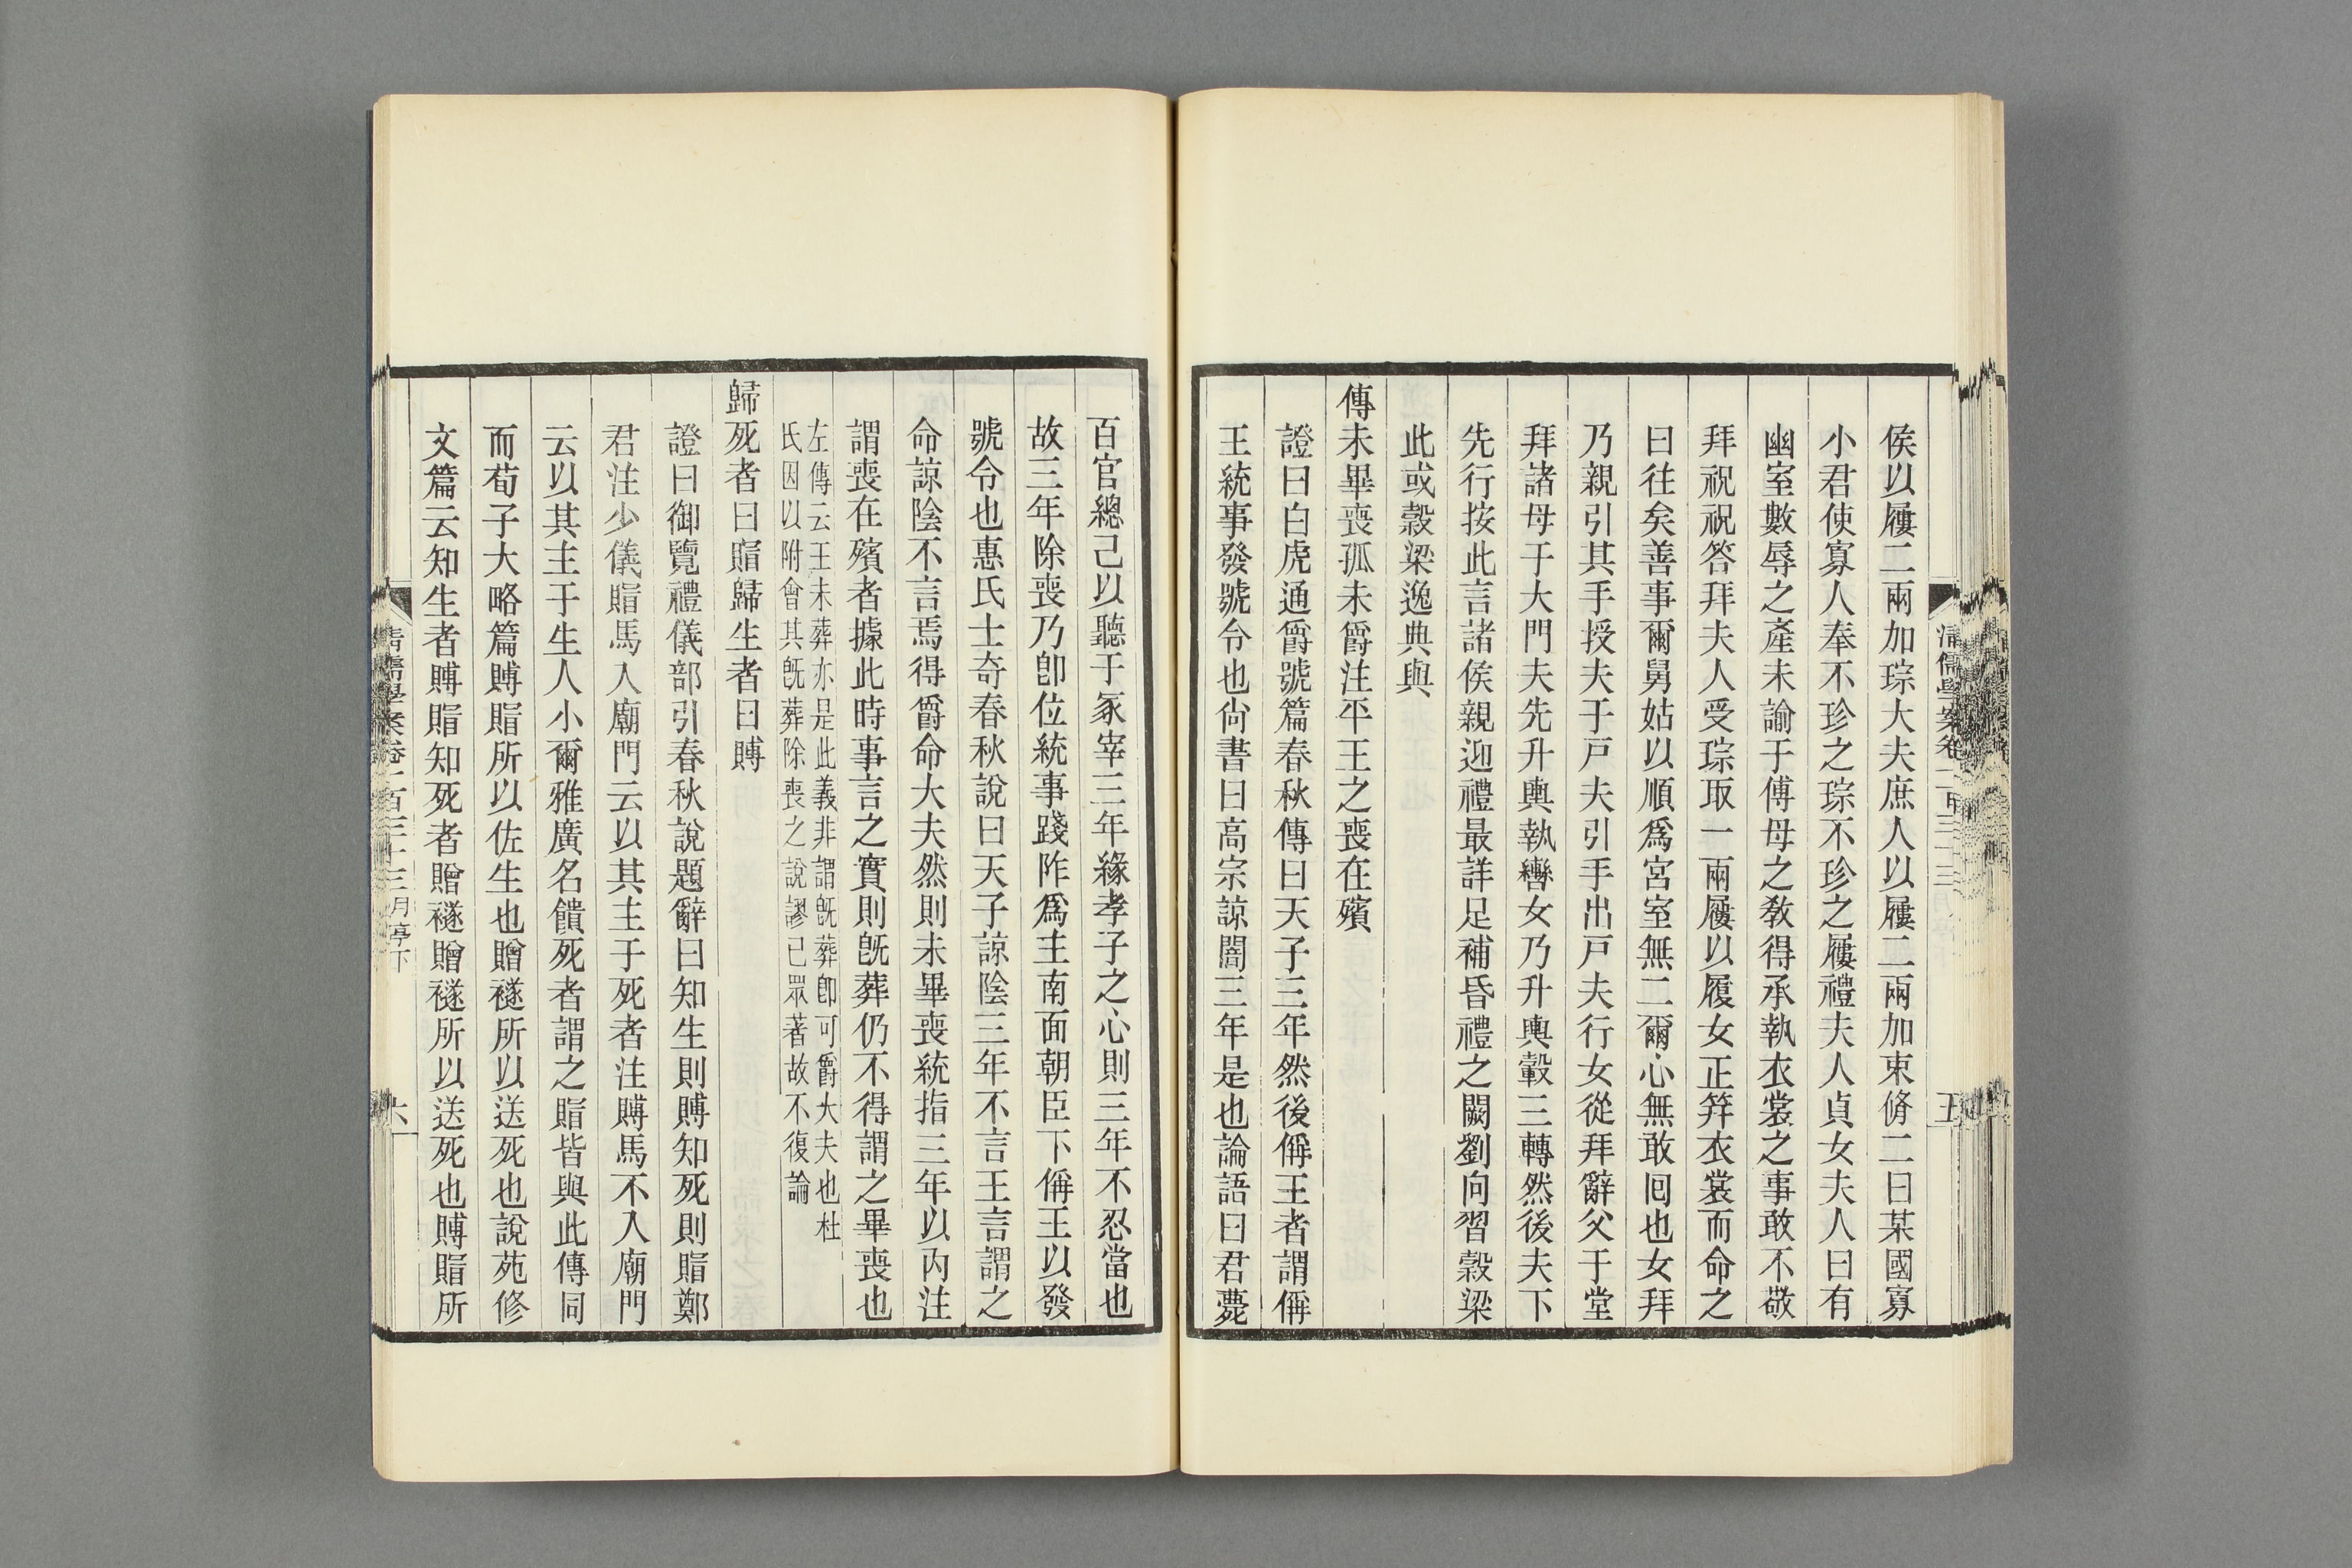 侯以屨二兩加琮大夫庶人以屨二兩加束脩二曰某國寡
小君使寡人奉不珍之琮不珍之屨禮夫人貞女夫人曰有
幽室數辱之產未諭于傅母之敎得承執衣裳之事敢不敬
拜祝祝答拜夫人受琮取一兩屨以履女正笄衣裳而命之
曰往矣善事爾舅姑以順爲宮室無二爾心無敢回也女拜
乃親引其手授夫于戶夫引手出戶夫行女從拜辭父于堂
拜諸母于大門夫先升輿執轡女乃升輿轂三轉然後夫下
先行按此言諸侯親迎禮最詳足補昏禮之闕劉向習穀梁
此或穀梁逸典與
傳未畢喪孤未爵注平王之喪在殯
證曰白虎通爵號篇春秋傳曰天子三年然後偁王者謂偁
王統事發號令也尙書曰高宗諒闇三年是也論語曰君薨
百官總己以聽于冢宰三年緣孝子之心則三年不忍當也
故三年除喪乃卽位統事踐阼爲主南面朝臣下偁王以發
號令也惠氏士奇春秋說曰天子諒陰三年不言王言謂之
命諒陰不言焉得爵命大夫然則未畢喪統指三年以內注
謂喪在殯者據此時事言之實則旣葬仍不得謂之畢喪也
左傳云王未葬亦是此義非謂旣葬卽可爵大夫也杜
氏因以附會其旣葬除喪之說謬已眾著故不復論
歸死者曰賵歸生者曰賻
證曰御覽禮儀部引春秋說題辭曰知生則賻知死則賵鄭
君注少儀賵馬入廟門云以其主于死者注賻馬不入廟門
云以其主于生人小爾雅廣名饋死者謂之賵皆與此傳同
而荀子大略篇賻賵所以佐生也贈襚所以送死也說苑修
文篇云知生者賻賵知死者贈襚贈襚所以送死也賻賵所